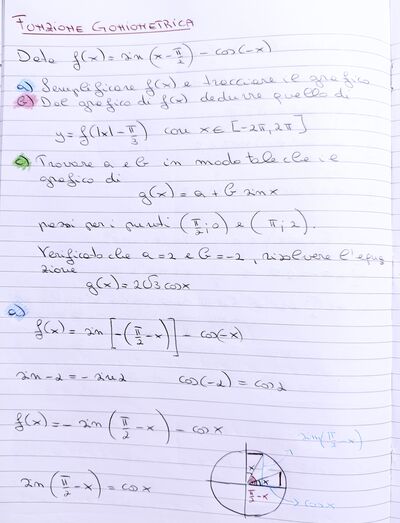 FUNZIONE GONIOMETRICA
Data f(x) = sin (x - π/2) - cos(-x)
a) Semplificare f(x) e tracciare il grafico
b) Dal grafico di f(x) dedurre quello di
y = f(|x| - π/3) con x ∈ [-2π, 2π]
c) Trovare a e b in modo tale che il
grafico di
g(x) = a + b sinx
passi per i punti (π/2; 0) e (π; 2).
Verificato che a = 2 e b = -2, risolvere l'equa
zione
g(x) = 2√3 cosx
a)
f(x) = sin [-(π/2 - x)] - cos(-x)
sin-α = - sinα cos(-α) = cosα
f(x) = - sin (π/2 - x) - cosx
sin(π/2 - x)
sin (π/2 - x) = cosx
x
x
π/2 - x
→ cosx